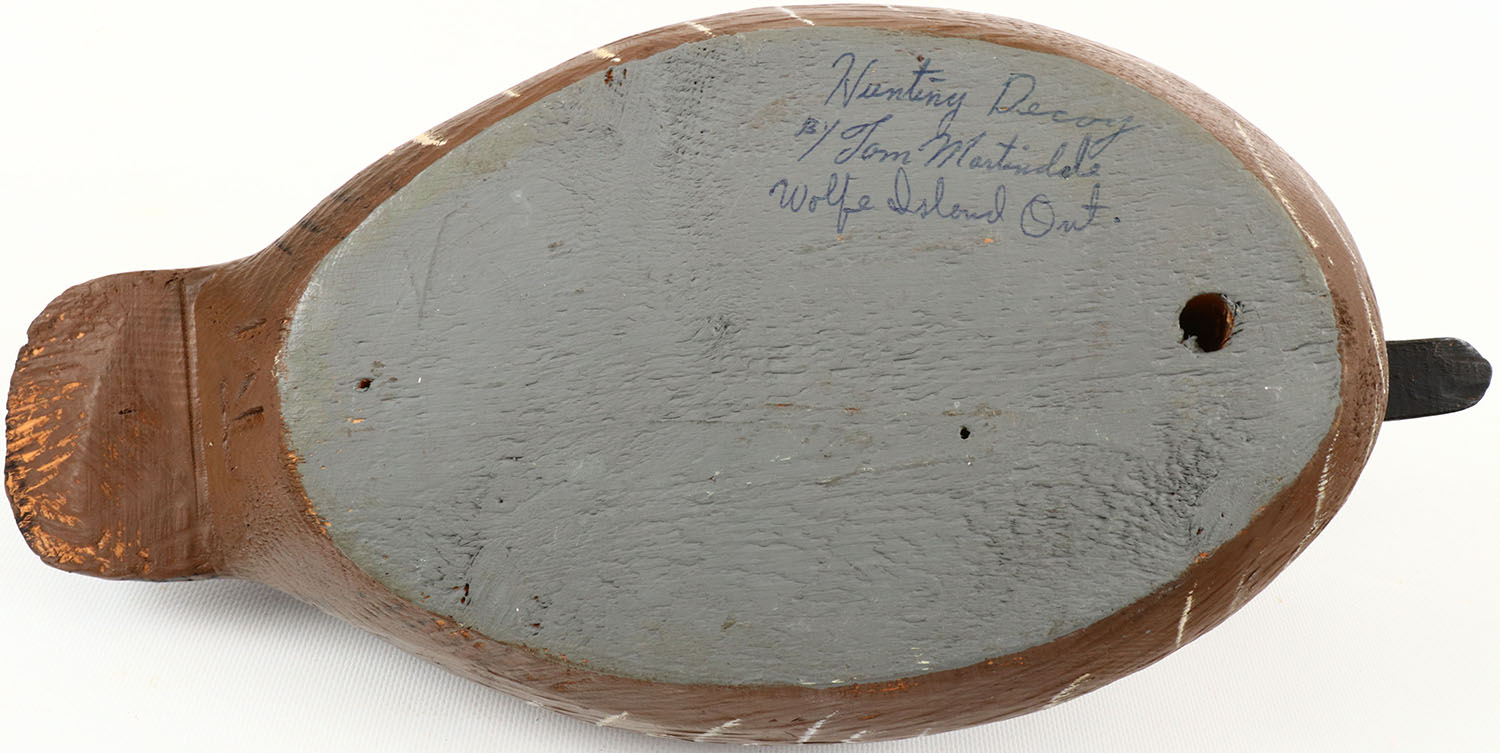 Hunting Decoy
By Tom Martindale
Wolfe Island Ont.